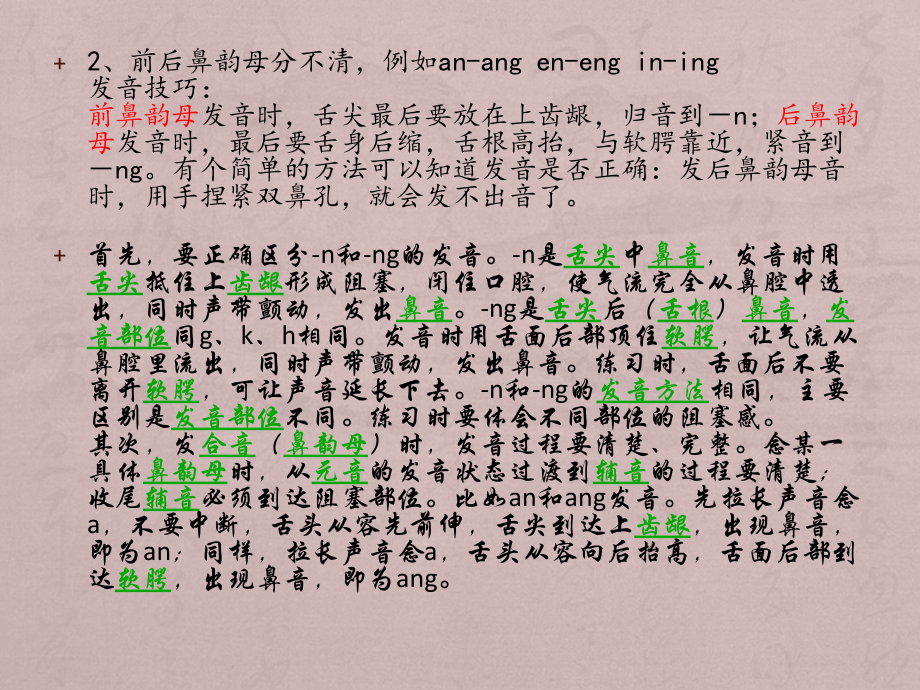 2、前后鼻韵母分不清，例如an-ang en-eng in-ing
发音技巧：
前鼻韵母发音时，舌尖最后要放在上齿龈，归音到－n；后鼻韵
母发音时，最后要舌身后缩，舌根高抬，与软腭靠近，紧音到
－ng。有个简单的方法可以知道发音是否正确：发后鼻韵母音
时，用手捏紧双鼻孔，就会发不出音了。
首先，要正确区分-n和-ng的发音。-n是舌尖中鼻音，发音时用
舌尖抵住上齿龈形成阻塞，闭住口腔，使气流完全从鼻腔中透
出，同时声带颤动，发出鼻音。-ng是舌尖后（舌根）鼻音，发
音部位同g、k、h相同。发音时用舌面后部顶住软腭，让气流从
鼻腔里流出，同时声带颤动，发出鼻音。练习时，舌面后不要
离开软腭，可让声音延长下去。-n和-ng的发音方法相同，主要
区别是发音部位不同。练习时要体会不同部位的阻塞感。
其次，发合音（鼻韵母）时，发音过程要清楚、完整。念某一
具体鼻韵母时，从元音的发音状态过渡到辅音的过程要清楚；
收尾辅音必须到达阻塞部位。比如an和ang发音。先拉长声音念
a，不要中断，舌头从容先前伸，舌尖到达上齿龈，出现鼻音，
即为an；同样，拉长声音念a，舌头从容向后抬高，舌面后部到
达软腭，出现鼻音，即为ang。